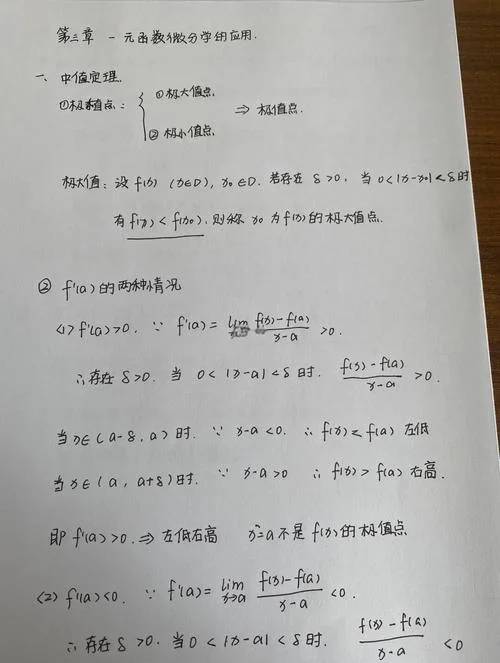 第三章 一元函数微分学的应用.
一、中值定理.
①极值点: { ①极大值点. ②极小值点. ⇒ 极值点.
极大值: 设 f(x) (x∈D), x₀∈D. 若存在 δ>0, 当 0<|x-x₀|<δ时
有 f(x)<f(x₀), 则称 x₀ 为 f(x) 的极大值点.
② f'(a) 的两种情况
<1> f'(a)>0. ∵ f'(a)= lim (f(x)-f(a))/(x-a) >0.
∴存在 δ>0. 当 0<|x-a|<δ时. (f(x)-f(a))/(x-a) >0.
当x∈(a-δ,a)时. ∵ x-a<0. ∴ f(x)<f(a) 左低
当x∈(a,a+δ)时. ∵ x-a>0 ∴ f(x)>f(a) 右高.
即 f'(a)>0. ⇒ 左低右高 x=a不是 f(x)的极值点
(2) f'(a)<0. ∵ f'(a)= lim x→a (f(x)-f(a))/(x-a) <0.
∴存在 δ>0. 当 0<|x-a|<δ时. (f(x)-f(a))/(x-a) <0